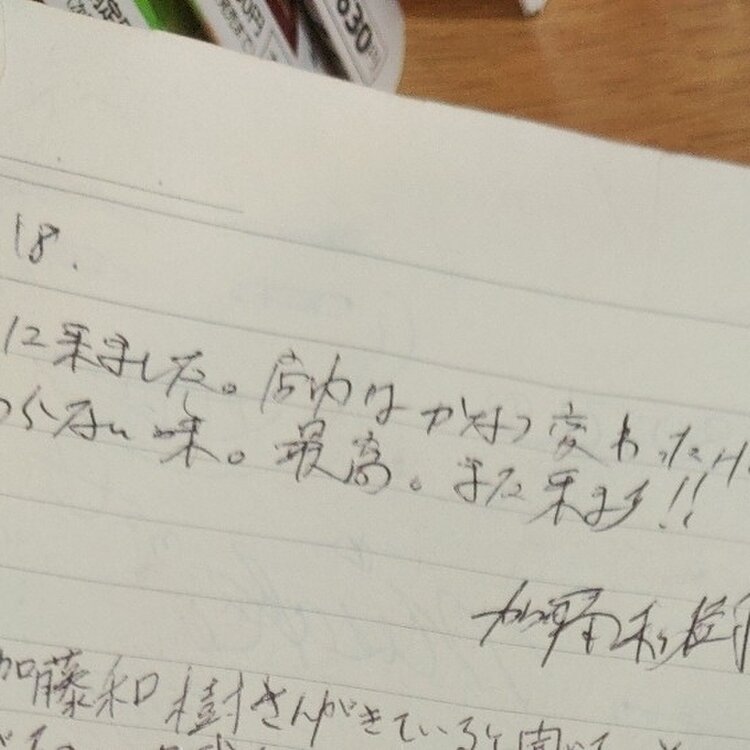 630
18.
に来ました。店内はかなり変わったけ
わらない味。最高。また来ます!!
加藤和樹
加藤和樹さんがきていると聞いて